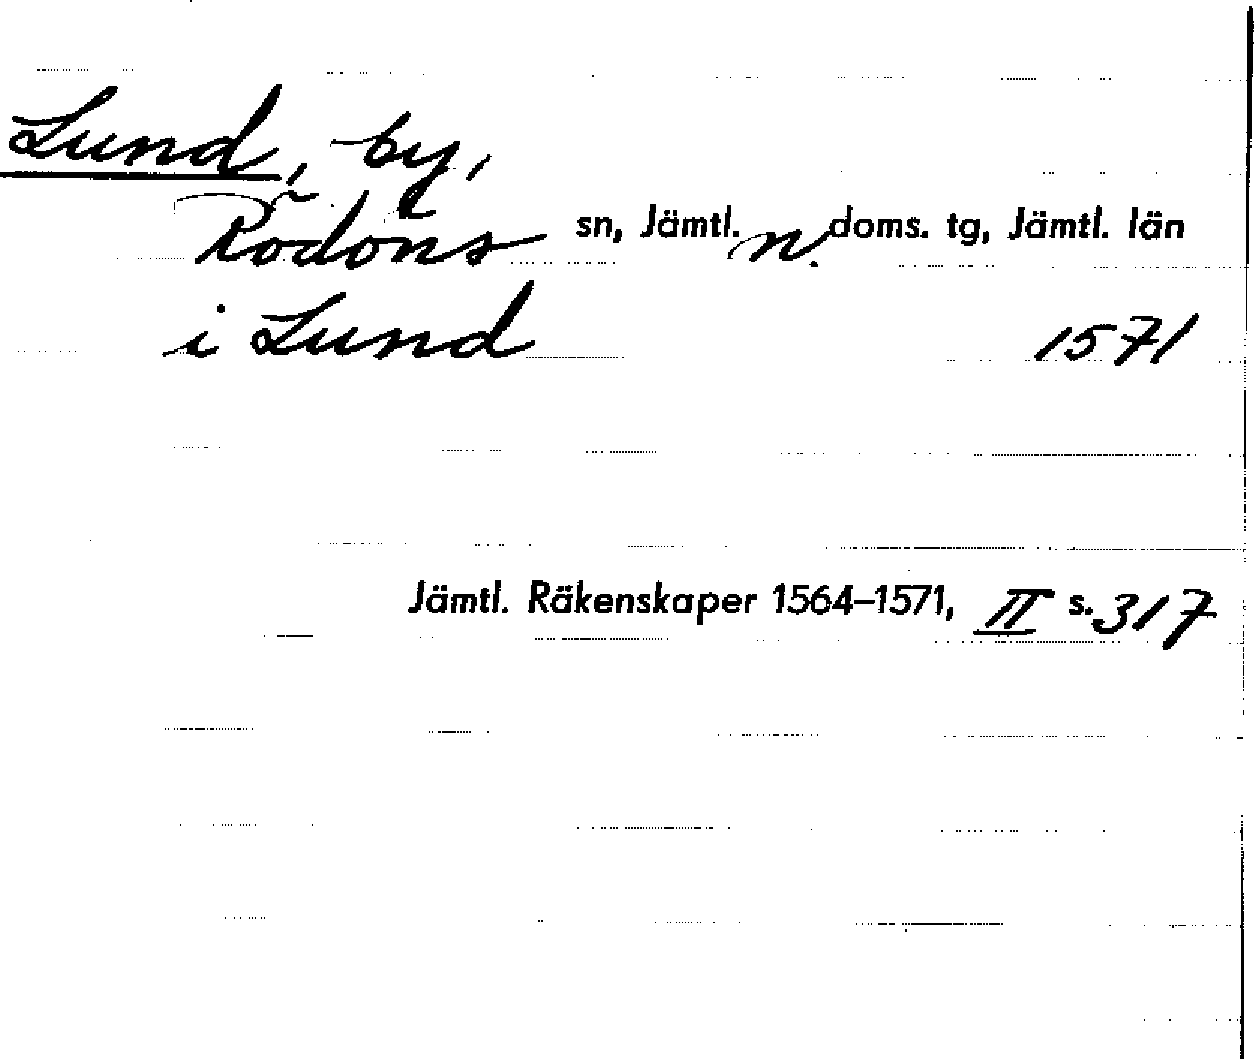 Lund, by,
Rödöns sn, Jämtl. n. doms. tg, Jämtl. län
i Lund 1571
Jämtl. Räkenskaper 1564–1571, II s. 317